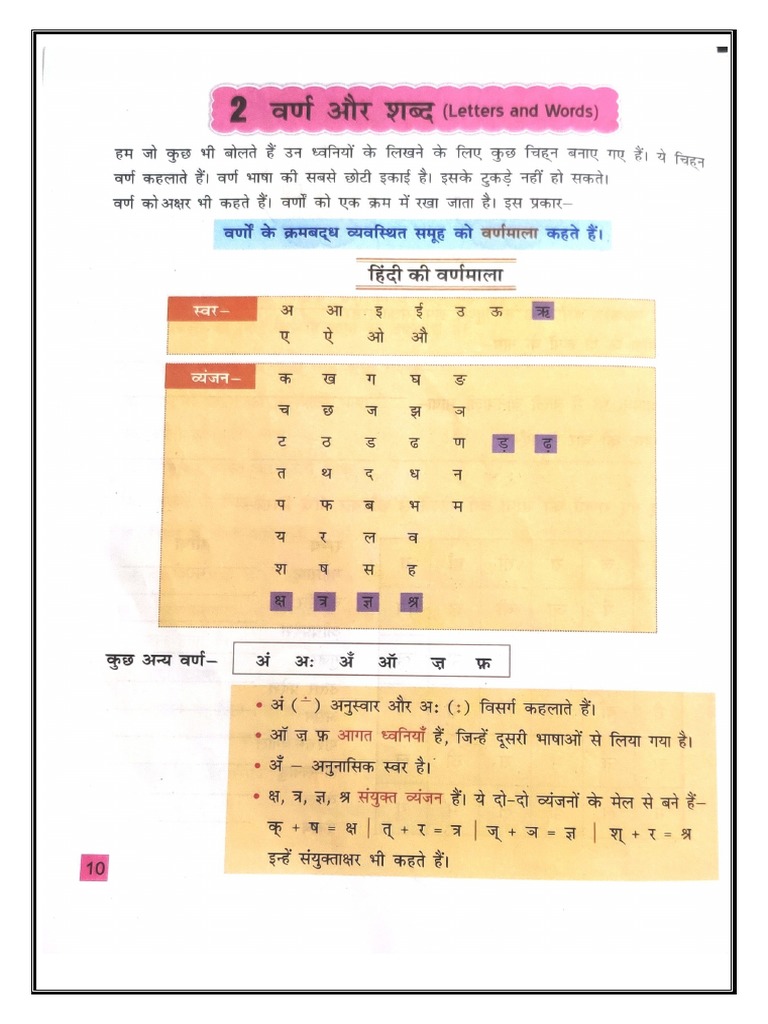 2 वर्ण और शब्द (Letters and Words)
हम जो कुछ भी बोलते हैं उन ध्वनियों के लिखने के लिए कुछ चिह्न बनाए गए हैं। ये चिह्न
वर्ण कहलाते हैं। वर्ण भाषा की सबसे छोटी इकाई है। इसके टुकड़े नहीं हो सकते।
वर्ण को अक्षर भी कहते हैं। वर्णों को एक क्रम में रखा जाता है। इस प्रकार–
वर्णों के क्रमबद्ध व्यवस्थित समूह को वर्णमाला कहते हैं।
हिंदी की वर्णमाला
स्वर– अ आ इ ई उ ऊ ऋ
ए ऐ ओ औ
व्यंजन– क ख ग घ ङ
च छ ज झ ञ
ट ठ ड ढ ण ड़ ढ़
त थ द ध न
प फ ब भ म
य र ल व
श ष स ह
क्ष त्र ज्ञ श्र
कुछ अन्य वर्ण– अं अः अँ ऑ ज़ फ़
• अं (ं) अनुस्वार और अः (ः) विसर्ग कहलाते हैं।
• ऑ ज़ फ़ आगत ध्वनियाँ हैं, जिन्हें दूसरी भाषाओं से लिया गया है।
• अँ – अनुनासिक स्वर है।
• क्ष, त्र, ज्ञ, श्र संयुक्त व्यंजन हैं। ये दो-दो व्यंजनों के मेल से बने हैं–
क् + ष = क्ष | त् + र = त्र | ज् + ञ = ज्ञ | श् + र = श्र
इन्हें संयुक्ताक्षर भी कहते हैं।
10